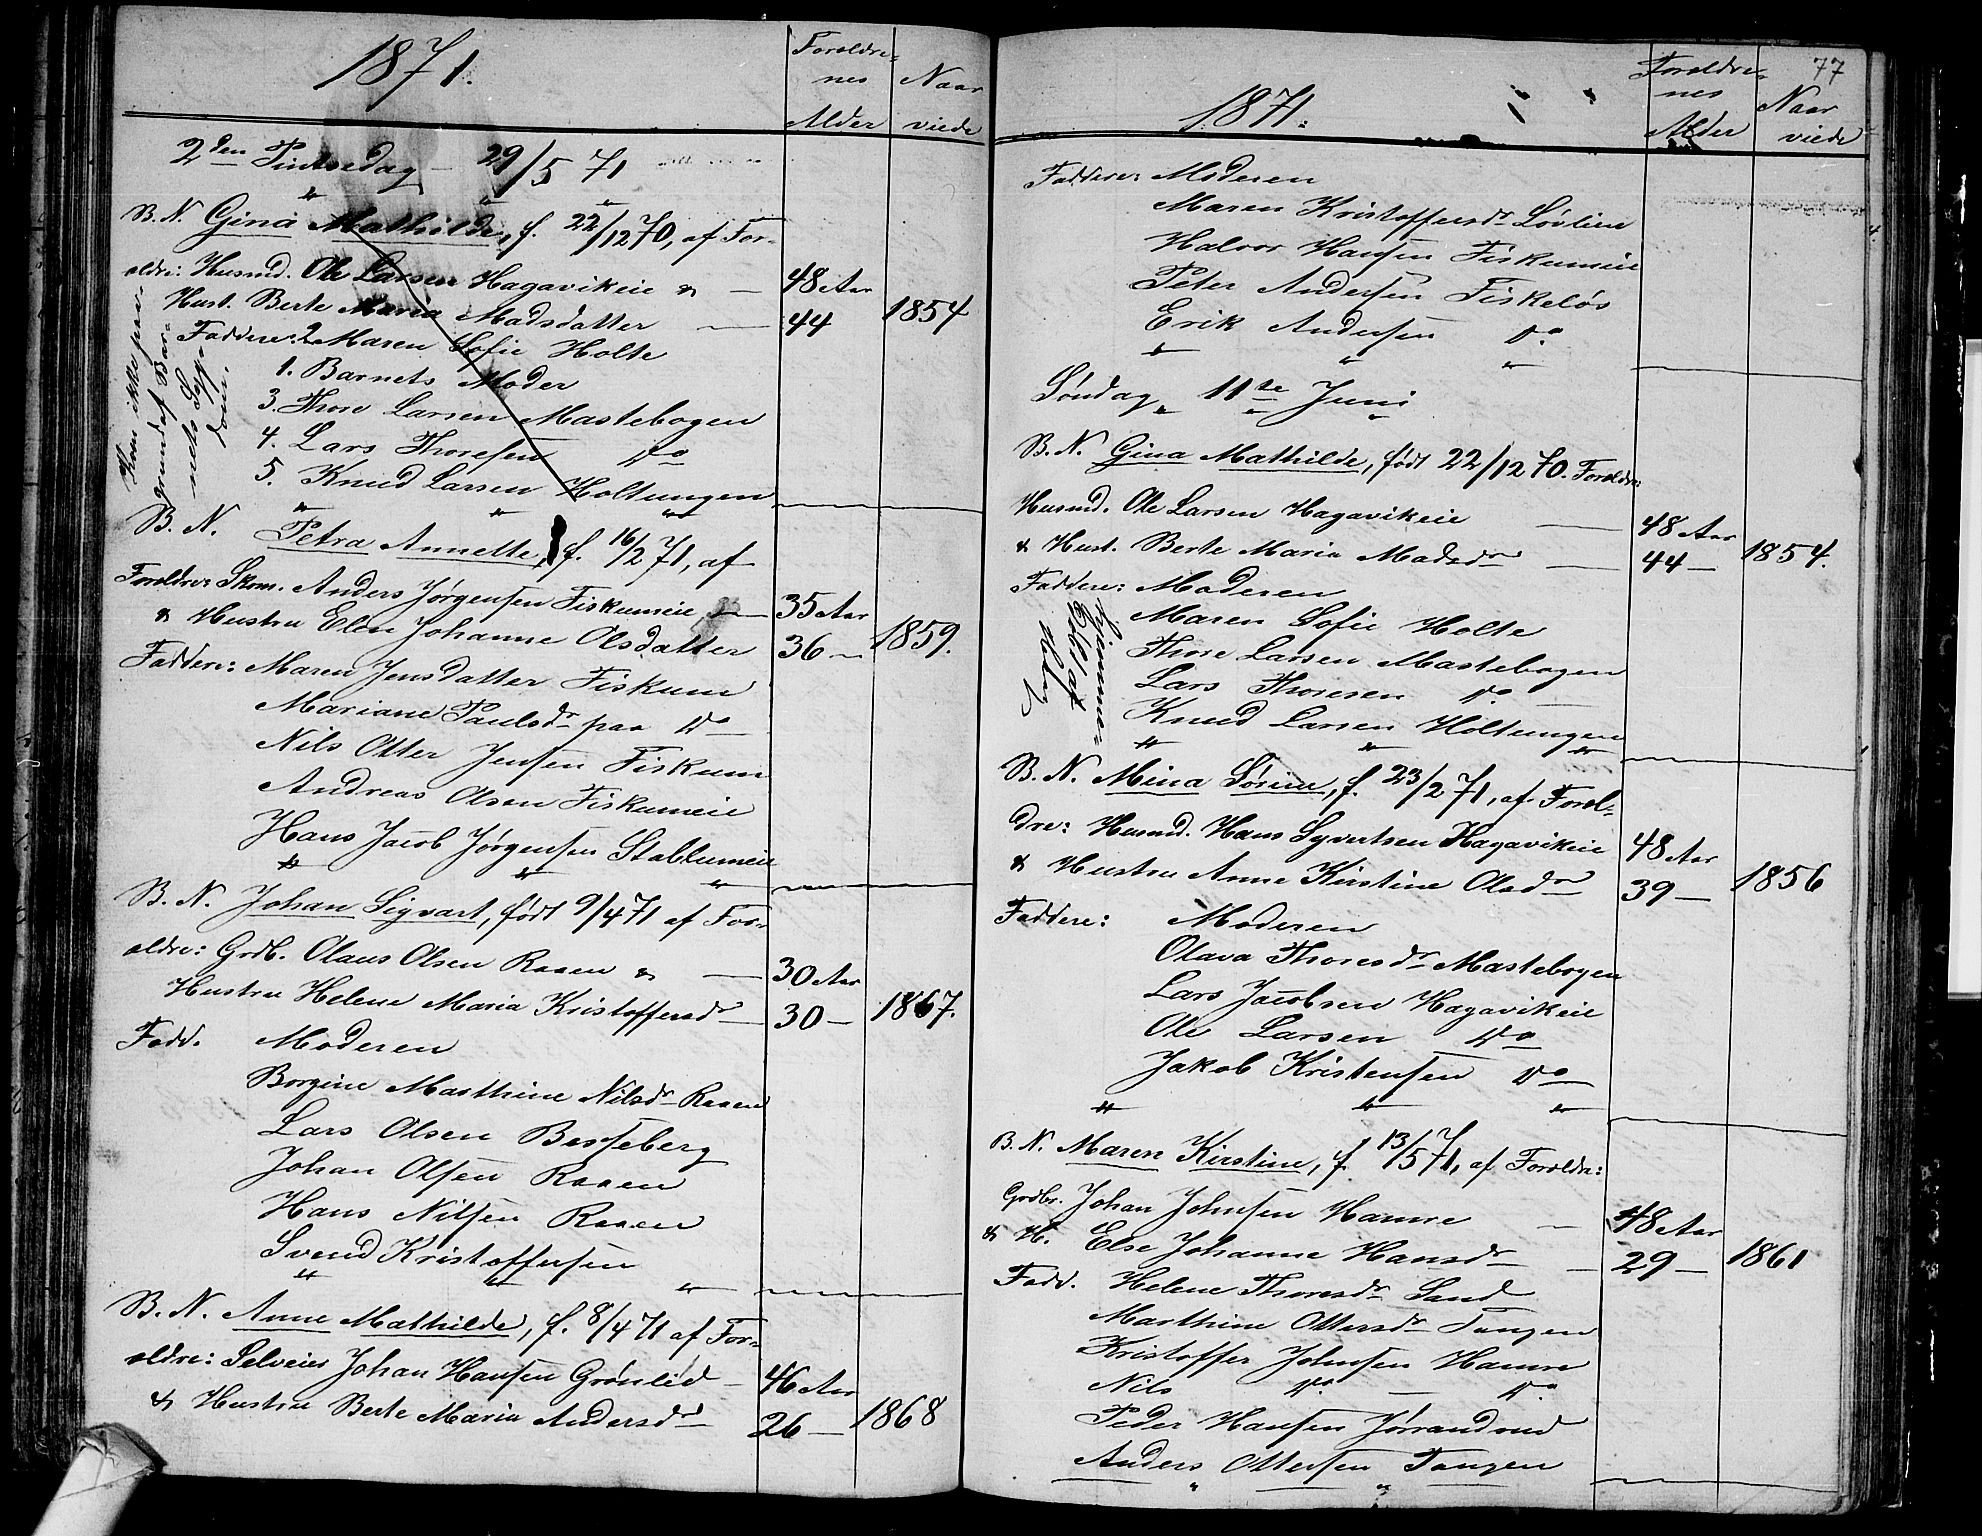 1871.
Forældre-
nes
Alder
Naar
viede
2den Pintsedag - 29/5 71
B. N. Gina Mathilde, f. 22/12 70, af For-
ældre: Husmd. Ole Larsen Hagavikeie & — 48 Aar
Hust. Berte Maria Madsdatter — 44 1854
Faddere: 2 Maren Sofie Holte
1. Barnets Moder
3. Thore Larsen Mastebogen
4. Lars Thoresen Do
5. Knud Larsen Holtungen
Kom ikke paa
grund af Bar-
nets Syg-
dom.
B. N. Petra Annette, f. 16/2 71, af
Forældre: Skom. Anders Jørgensen Fiskumeie — 35 Aar
& Hustru Elen Johanne Olsdatter 36 — 1859.
Faddere: Maren Jensdatter Fiskum
Mariane Paulsdr paa Do
Nils Otter Jensen Fiskum
Andreas Olsen Fiskumeie
Hans Jacob Jørgensen Stablumeie
B. N. Johan Sigvart, født 9/4 71 af For-
ældre: Grdb. Olaus Olsen Raaen & — 30 Aar
Hustru Helene Maria Kristoffersdr — 30 — 1867.
Fadd. Moderen
Borgine Marthine Nilsdr Raaen
Lars Olsen Besseberg
Johan Olsen Raaen
Hans Nilsen Raaen
Svend Kristoffersen
B. N. Anne Mathilde, f. 8/4 71 af For-
ældre: Selveier Johan Hansen Grønlid — 46 Aar
& Hustru Berte Maria Andersdr 26 — 1868
77
1871.
Forældre-
nes
Alder
Naar
viede
Faddere: Moderen
Maren Kristoffersdr Løvlien
Halvor Hansen Fiskumeie
Peter Andersen Fiskeløs
Erik Andersen Do.
Søndag 11te Juni
B. N. Gina Mathilde, født 22/12 70. Forældre:
Husmd. Ole Larsen Hagavikeie — 48 Aar
& Hust. Berte Maria Madsdr — 44 — 1854.
Faddere: Moderen
Maren Sofie Holte
Thore Larsen Mastebogen
Lars Thoresen Do
Knud Larsen Holtungen
Hjemme-
døbt af
B. N. Mina Sørine, f. 23/2 71, af Foræl-
dre: Husmd. Hans Syvertsen Hagavikeie 48 Aar
& Hustru Anne Kirstine Olsdr 39 — 1856
Faddere: Moderen
Olava Thoresdr Mastebogen
Lars Jacobsen Hagavikeie
Ole Larsen Do
Jakob Kristensen Do
B. N. Maren Kirstine, f. 13/5 71, af Forældre:
Grdbr. Johan Johnsen Hamre — 48 Aar
& H. Else Johanne Hansdr — 29 — 1861
Fadd. Helene Thoresdr Sand
Marthine Ottersdr Tangen
Kristoffer Johnsen Hamre
Nils Do. — Do
Peder Hansen Jørrandrud
Anders Ottersen Tangen